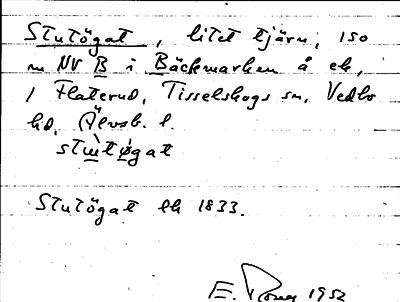 Stutögat, litet tjärn, 150
m NV B i Bäckmarken å ek,
1 Flaterud, Tisselskogs sn, Vedbo
hd, Älvsb. l.
stɯtøgat
Stutögat ek 1833.
E. 1952